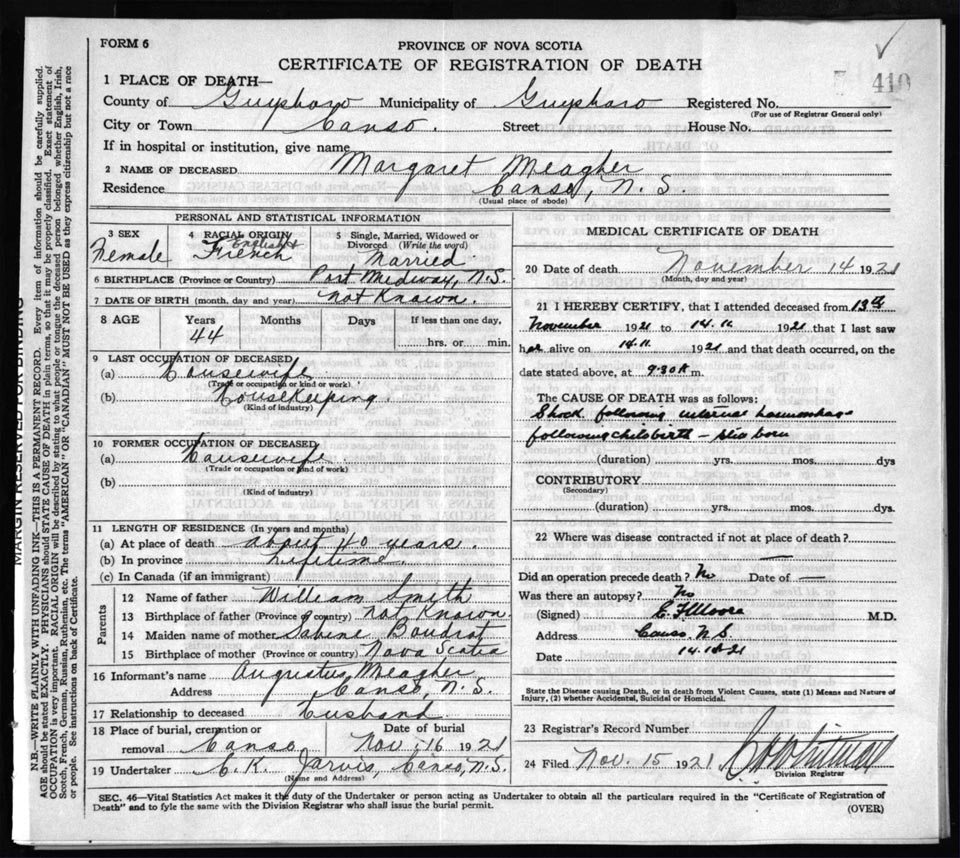 FORM 6
PROVINCE OF NOVA SCOTIA
CERTIFICATE OF REGISTRATION OF DEATH
410
1 PLACE OF DEATH—
County of Guysboro Municipality of Guysboro Registered No.
(For use of Registrar General only)
City or Town Canso. Street House No.
If in hospital or institution, give name
2 NAME OF DECEASED Margaret Meagher
Residence Canso, N.S.
(Usual place of abode)
PERSONAL AND STATISTICAL INFORMATION
3 SEX
Female
4 RACIAL ORIGIN
English &
French
5 Single, Married, Widowed or Divorced (Write the word)
Married
6 BIRTHPLACE (Province or Country) Port Medway, N.S.
7 DATE OF BIRTH (month, day and year) not Known.
8 AGE Years Months Days If less than one day,
44 hrs. or min.
9 LAST OCCUPATION OF DECEASED
(a) Housewife
(Trade or occupation or kind or work)
(b) Housekeeping.
(Kind of industry)
10 FORMER OCCUPATION OF DECEASED
(a) Housewife
(Trade or occupation or kind of work)
(b)
(Kind of industry)
11 LENGTH OF RESIDENCE (In years and months)
(a) At place of death about 40 years.
(b) In province Lifetime.
(c) In Canada (if an immigrant)
Parents
12 Name of father William Smith
13 Birthplace of father (Province or country) not Known
14 Maiden name of mother Sabine Boudrot
15 Birthplace of mother (Province or country) Nova Scotia
16 Informant's name Augustus Meagher
Address Canso, N.S.
17 Relationship to deceased Husband
18 Place of burial, cremation or removal Canso
Date of burial
Nov. 16 1921
19 Undertaker C.K. Jarvis, Canso, N.S.
(Name and Address)
MEDICAL CERTIFICATE OF DEATH
20 Date of death November 14 1921
(Month, day and year)
21 I HEREBY CERTIFY, that I attended deceased from 13th
November 1921 to 14.11 1921 that I last saw
her alive on 14.11 1921 and that death occurred, on the
date stated above, at 9.30 A m.
The CAUSE OF DEATH was as follows:
Shock following internal haemorrhage
following childbirth – still born
(duration) yrs. mos. dys
CONTRIBUTORY
(Secondary)
(duration) yrs. mos. dys.
22 Where was disease contracted if not at place of death? —
Did an operation precede death? No Date of —
Was there an autopsy? No
(Signed) Moore M.D.
Address Canso, N.S
Date
State the Disease causing Death, or in death from Violent Causes, state (1) Means and Nature of Injury, (2) whether Accidental, Suicidal or Homicidal.
23 Registrar's Record Number
24 Filed Nov. 15 1921
Division Registrar
SEC. 46—Vital Statistics Act makes it the duty of the Undertaker or person acting as Undertaker to obtain all the particulars required in the "Certificate of Registration of
Death" and to fyle the same with the Division Registrar who shall issue the burial permit.
(OVER)
MARGIN RESERVED FOR BINDING
N.B.—WRITE PLAINLY WITH UNFADING INK—THIS IS A PERMANENT RECORD. Every item of information should be carefully supplied.
AGE should be stated EXACTLY. PHYSICIANS should STATE CAUSE OF DEATH in plain terms, so that it may be properly classified. Exact statement of
OCCUPATION is very important. RACIAL ORIGIN will be described by stating to what people or tongue the deceased person belonged whether English, Irish,
Scotch, French, German, Russian, Ruthenian, etc. The terms "AMERICAN" OR "CANADIAN" MUST NOT BE USED as they express citizenship but not a race
or people. See instructions on back of Certificate.